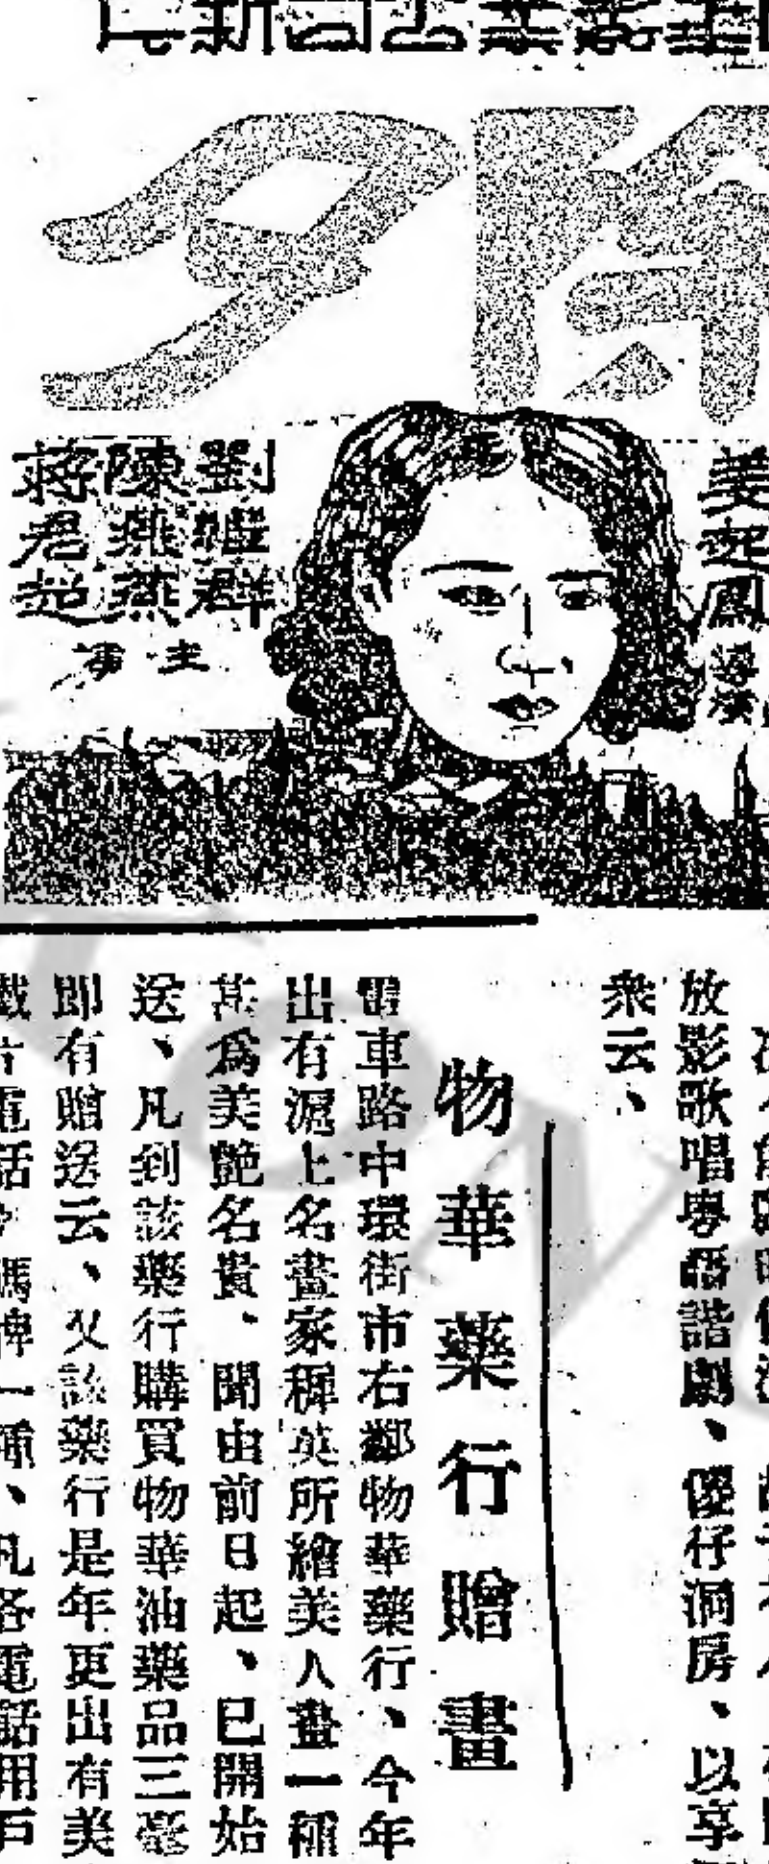 除夕
劉繼群
陳燕燕
蔣君超
主演
姜起鳳
導演
放影歌唱粵語諧劇、傻仔洞房、以享
衆云、
物華藥行贈畫
電車路中環街市右鄰物華藥行、今年
出有滬上名畫家穉英所繪美人畫一種
甚爲美艶名貴、聞由前日起、已開始
送、凡到該藥行購買物華油藥品三毫
即有贈送云、又該藥行是年更出有美
電話號碼牌一種、凡各電話用戶